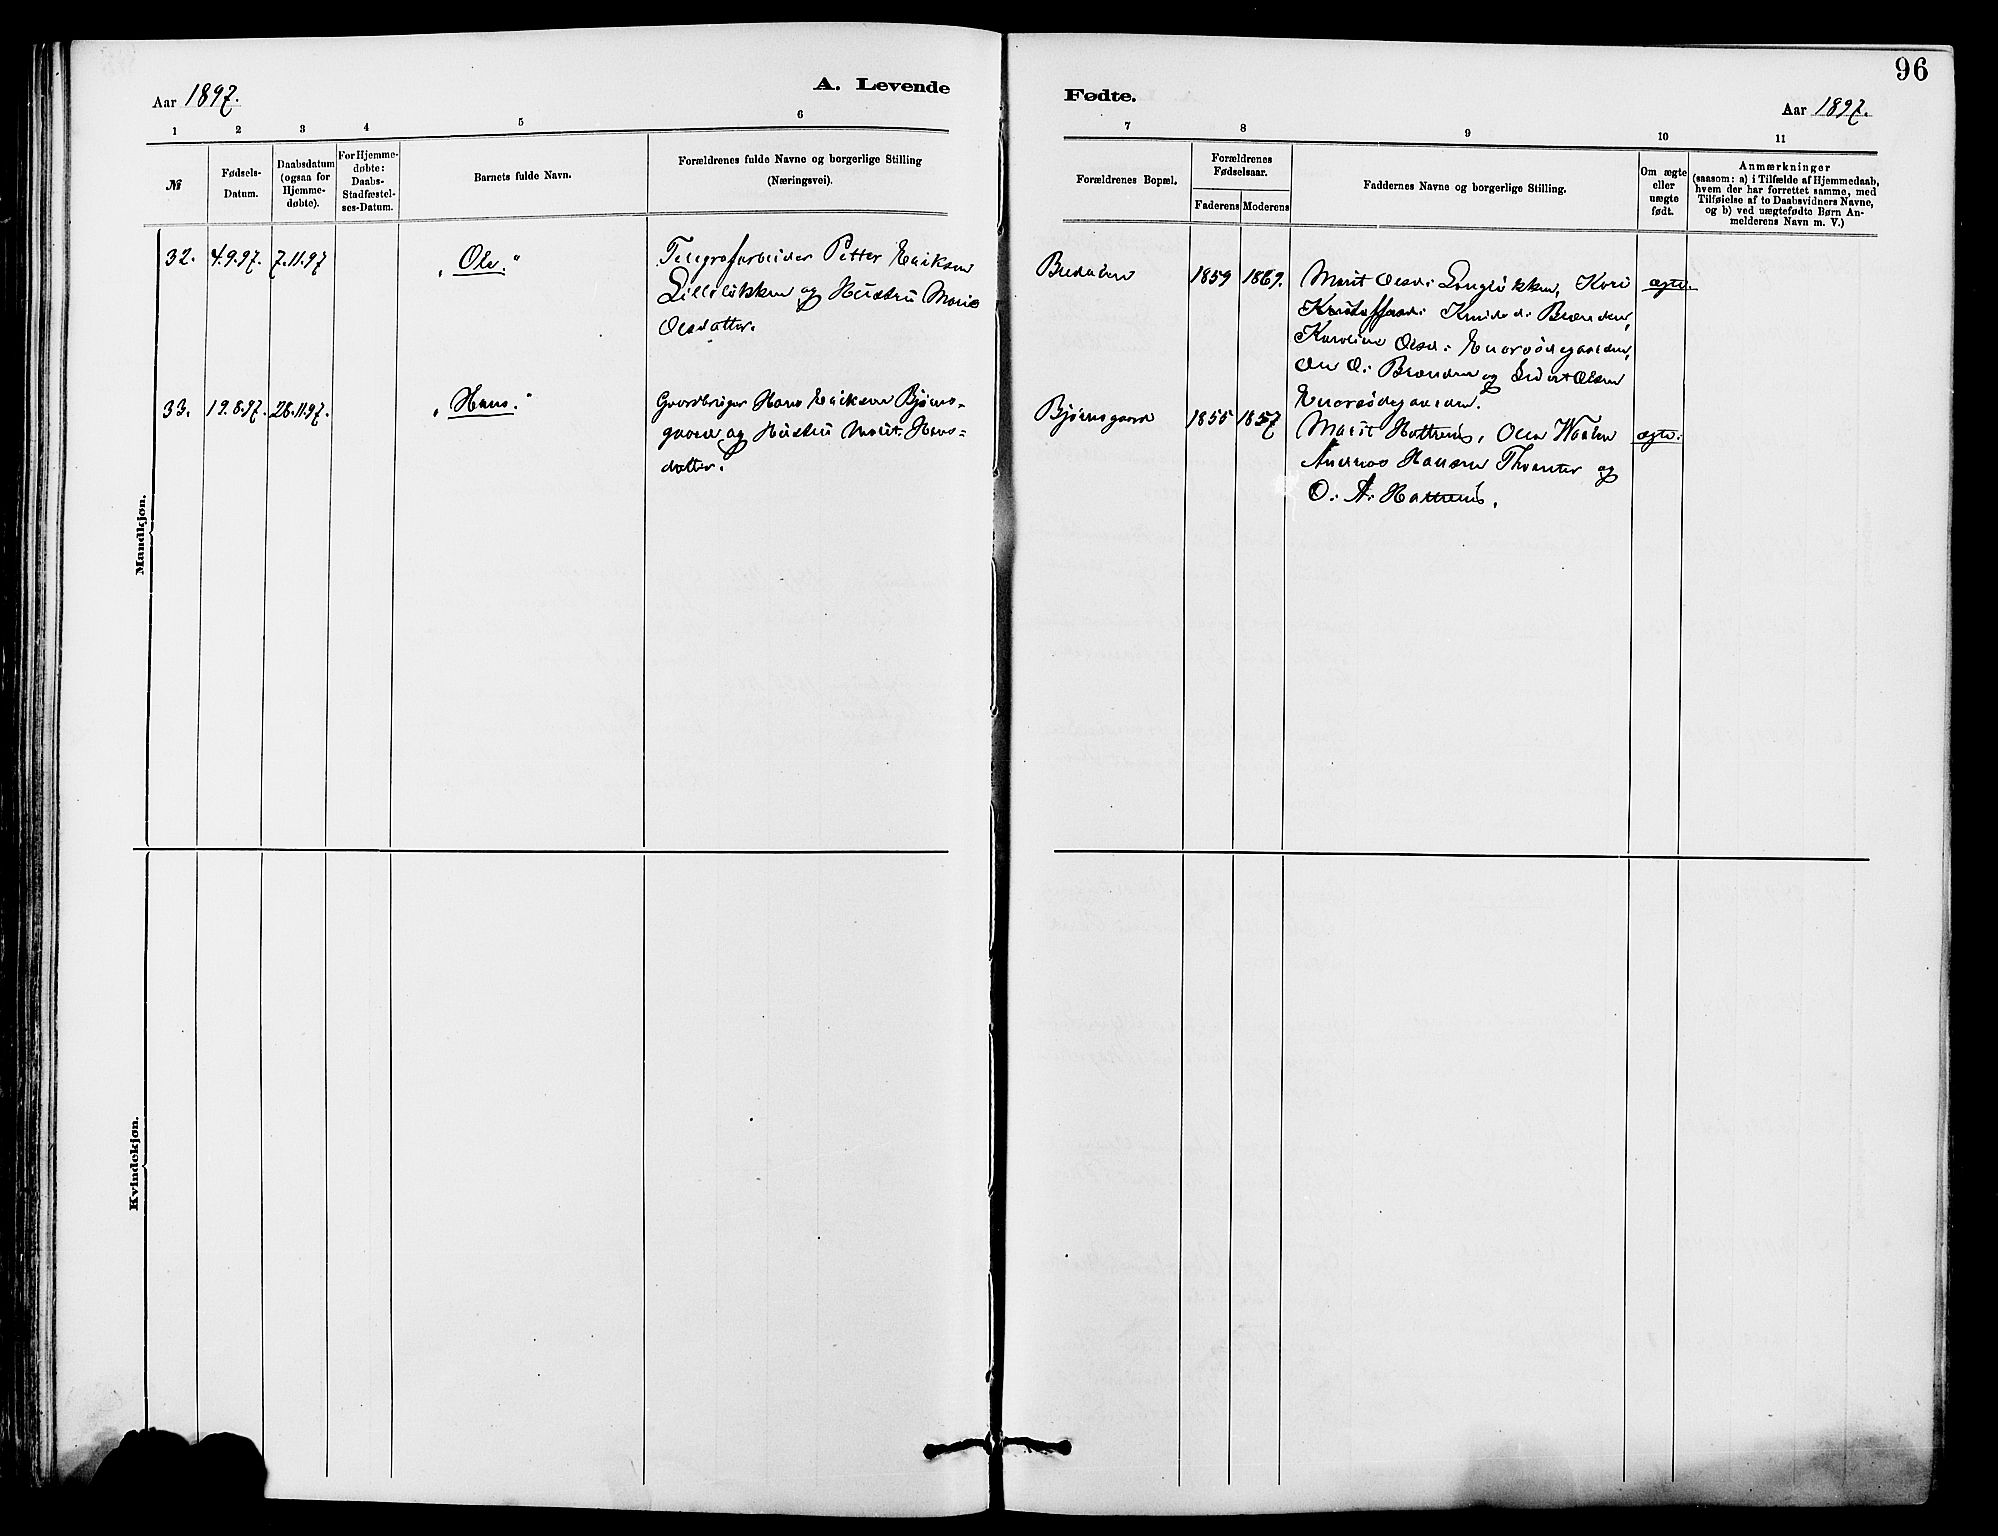 96
Aar 1897.
A. Levende
Fødte.
Aar 1897.
1 2 3 4 5 6
7 8 9 10 11
№
Fødsels-
Datum.
Daabsdatum
(ogsaa for
Hjemme-
døbte).
For Hjemme-
døbte:
Daabs-
Stadfæstel-
ses-Datum.
Barnets fulde Navn.
Forældrenes fulde Navne og borgerlige Stilling
(Næringsvei).
Forældrenes Bopæl.
Forældrenes
Fødselsaar.
Faderens Moderens
Faddernes Navne og borgerlige Stilling.
Om ægte
eller
uægte
født.
Anmærkninger
(saasom: a) i Tilfælde af Hjemmedaab,
hvem der har forrettet samme, med
Tilføielse af to Daabsvidners Navne,
og b) ved uægtefødte Børn An-
melderens Navn m. V.)
Mandkjøn.
32. 4.9.97. 7.11.97 „Ole."
Telegrafarbeider Petter Eriksen
Lilleløkken og Hustru Marie
Olsdatter.
1859 1869.
Marit Olsd: Langløkken, Kari
Kristoffersd: Knudsd:
Karoline Olsd:
O: og Sivert Olsen
ægte.
33. 19.8.97. 28.11.97. „Hans."
Gaardbruger Hans Eriksen Bjørns-
gaard og Hustru Marit Hans-
datter.
Bjørnsgaard 1855 1857
Marit Hattrem, Olea
Andreas Hansen og
O. A. Hattrem.
ægte.
Kvindekjøn.